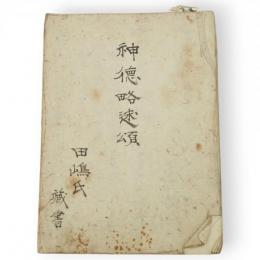 神德略述頌
田嶋氏
藏書